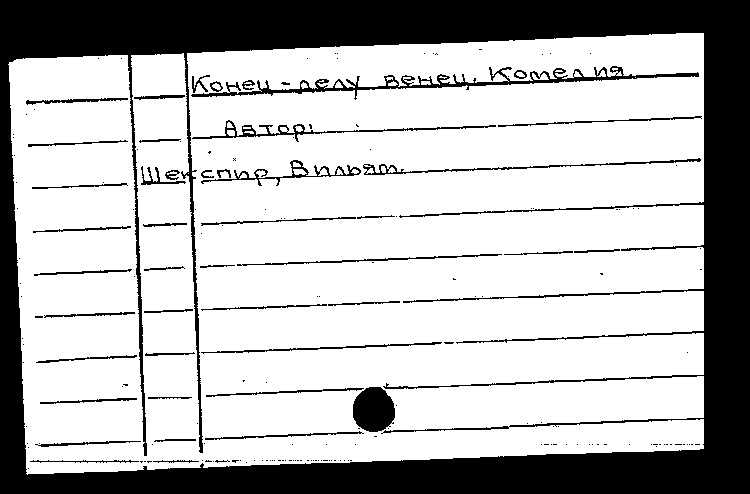 Конец - делу венец. Комедия.
Автор:
Шекспир, Вильям.